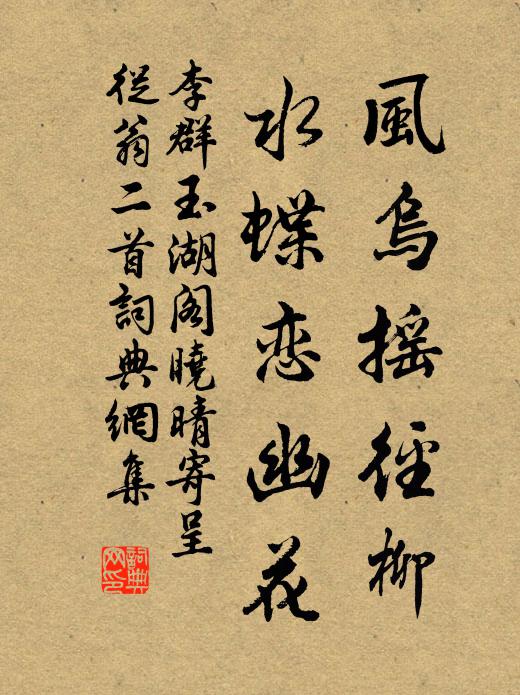 風烏摇徑柳
水蝶恋幽花
李群玉湖阁曉晴寄呈
從翁二首詞典網集
詞典
网印